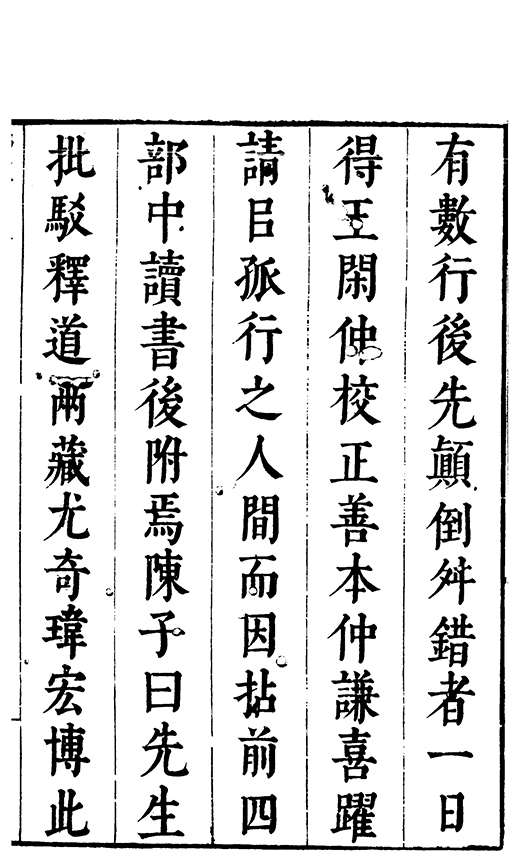 有數行後先顛倒舛錯者一日
得王閑仲校正善本仲謙喜躍
請㠯孤行之人間而因拈前四
部中讀書後附焉陳子曰先生
批駁釋道兩藏尤奇瑋宏博此